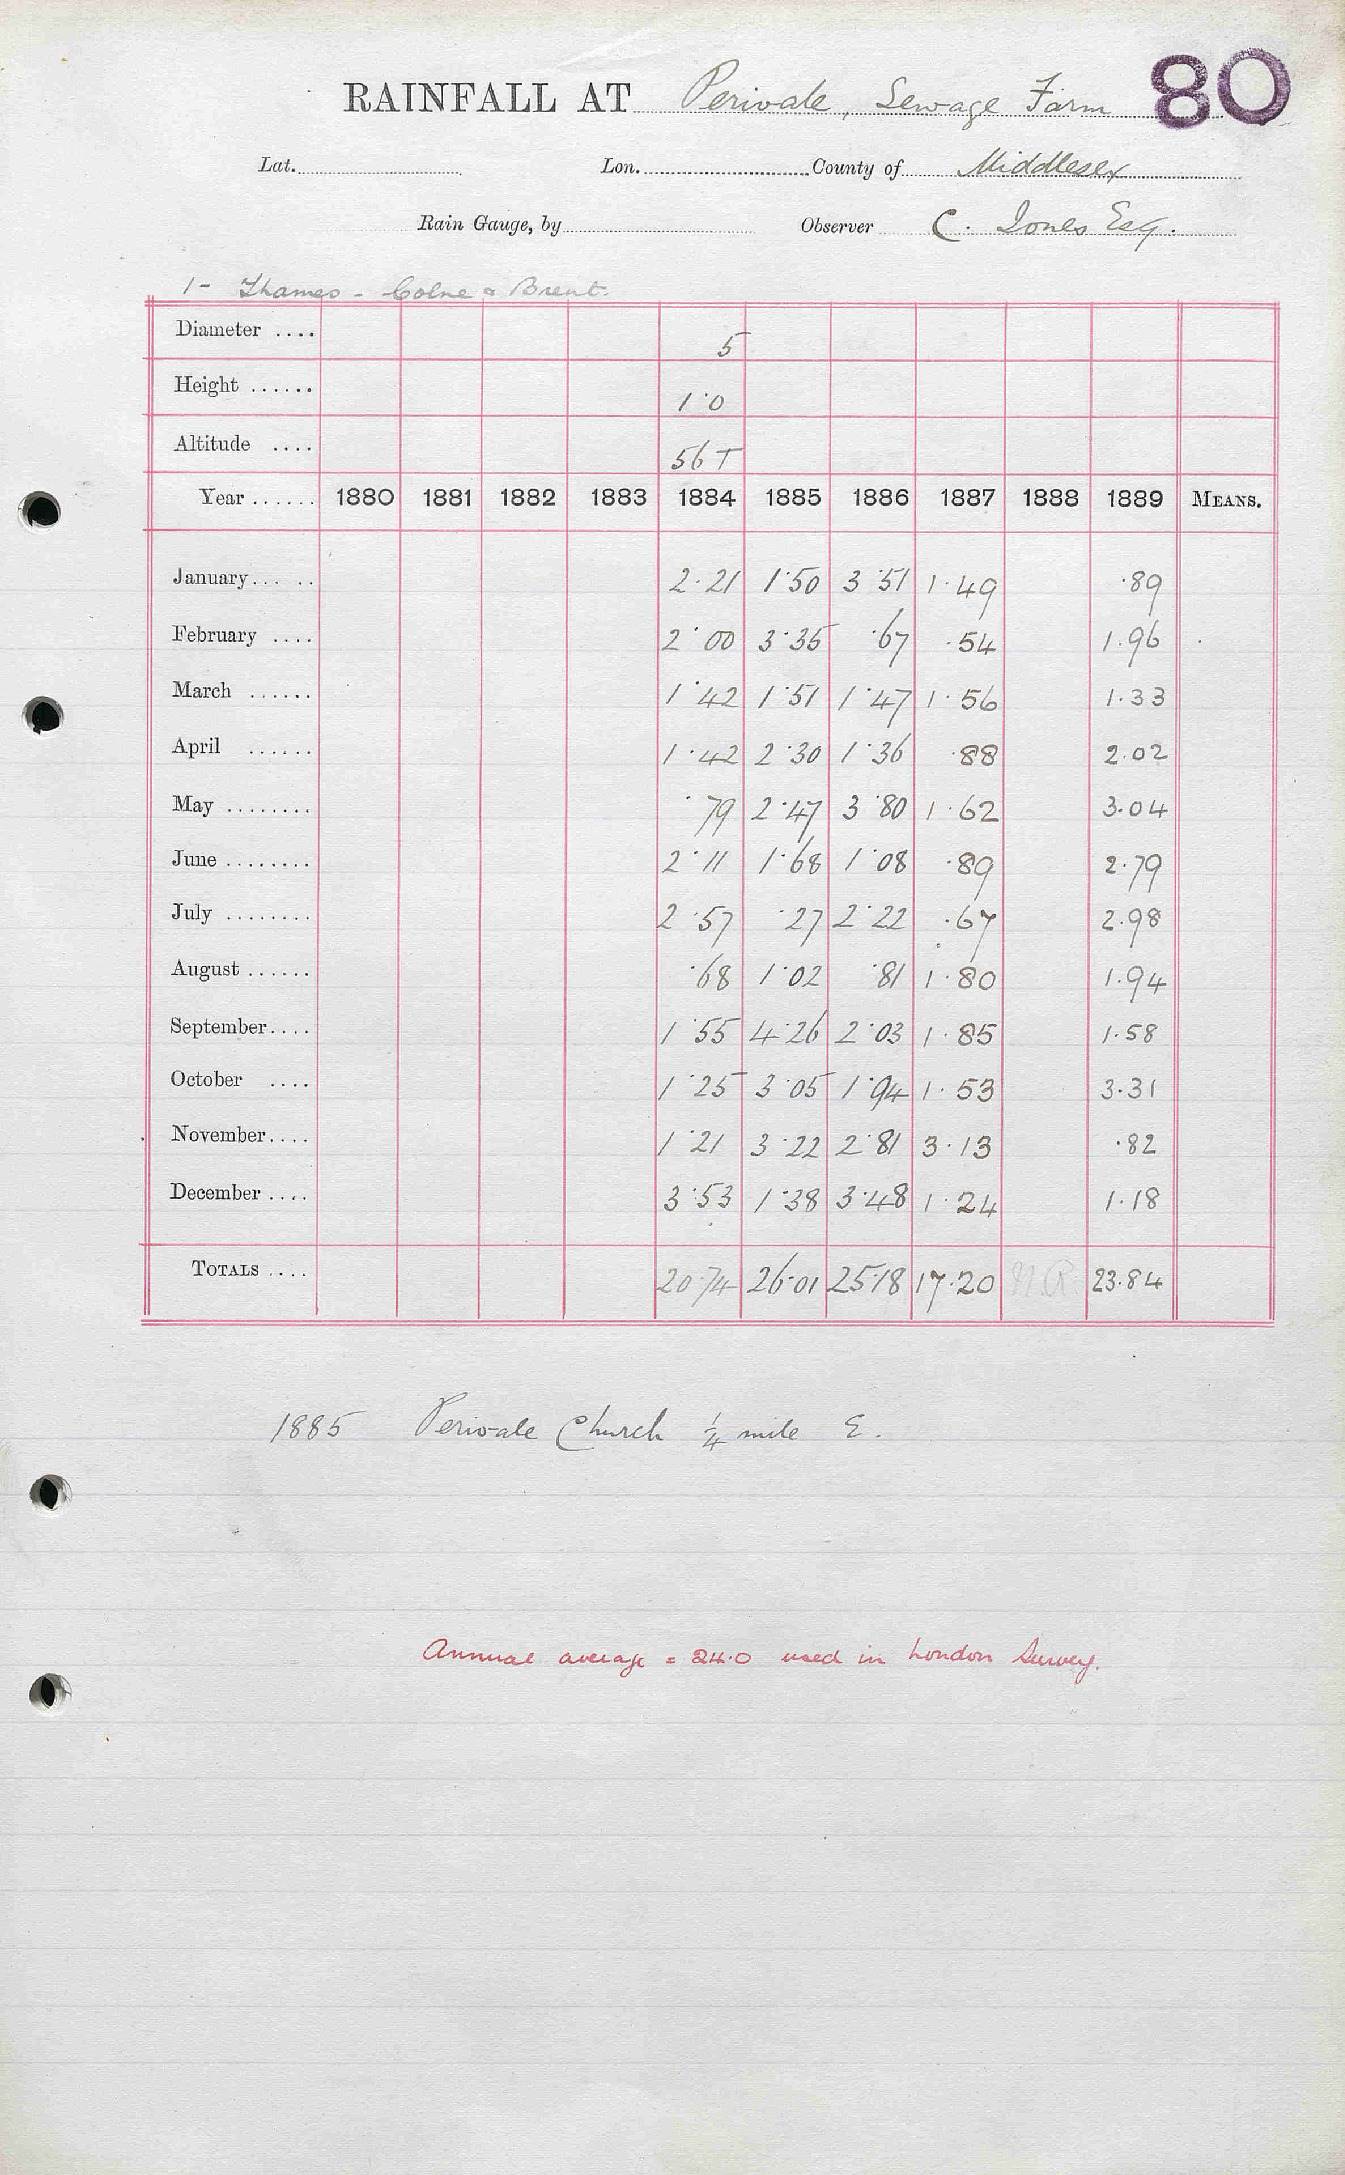 RAINFALL AT Perivale, Sewage Farm 80
Lat. Lon. County of Middlesex
Rain Gauge, by Observer C. Jones Esq.
1 - Thames - Colne & Brent.
Diameter .... 5
Height ...... 1·0
Altitude .... 56 T
Year ...... 1880 1881 1882 1883 1884 1885 1886 1887 1888 1889 MEANS.
January... .. 2·21 1·50 3·51 1·49 ·89
February .... 2·00 3·35 ·67 ·54 1·96
March ...... 1·42 1·51 1·47 1·56 1·33
April ...... 1·42 2·30 1·36 ·88 2·02
May ........ ·79 2·47 3·80 1·62 3·04
June ........ 2·11 1·68 1·08 ·89 2·79
July ........ 2·57 ·27 2·22 ·67 2·98
August ...... ·68 1·02 ·81 1·80 1·94
September.... 1·55 4·26 2·03 1·85 1·58
October .... 1·25 3·05 1·94 1·53 3·31
November.... 1·21 3·22 2·81 3·13 ·82
December .... 3·53 1·38 3·48 1·24 1·18
TOTALS .... 20·74 26·01 25·18 17·20 N.R. 23·84
1885 Perivale Church ¼ mile E.
Annual average = 24·0 used in London Survey.